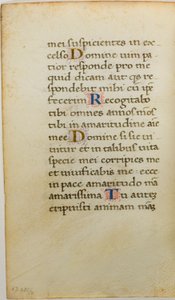 mei suspicientes in ex
celso Domine uim pa
tior responde pro me
quid dicam aut qs re
spondebit mihi cu ip
fecerim Recogitabo
tibi omnes annos mos
tibi in amaritudine aie
mee Domine si sic ui
uitur et in talibus uita
specie mei corripies me
et uiuificabis me: ecce
in pace amaritudo ma
amarissima Tu autez
eripuisti animam mag